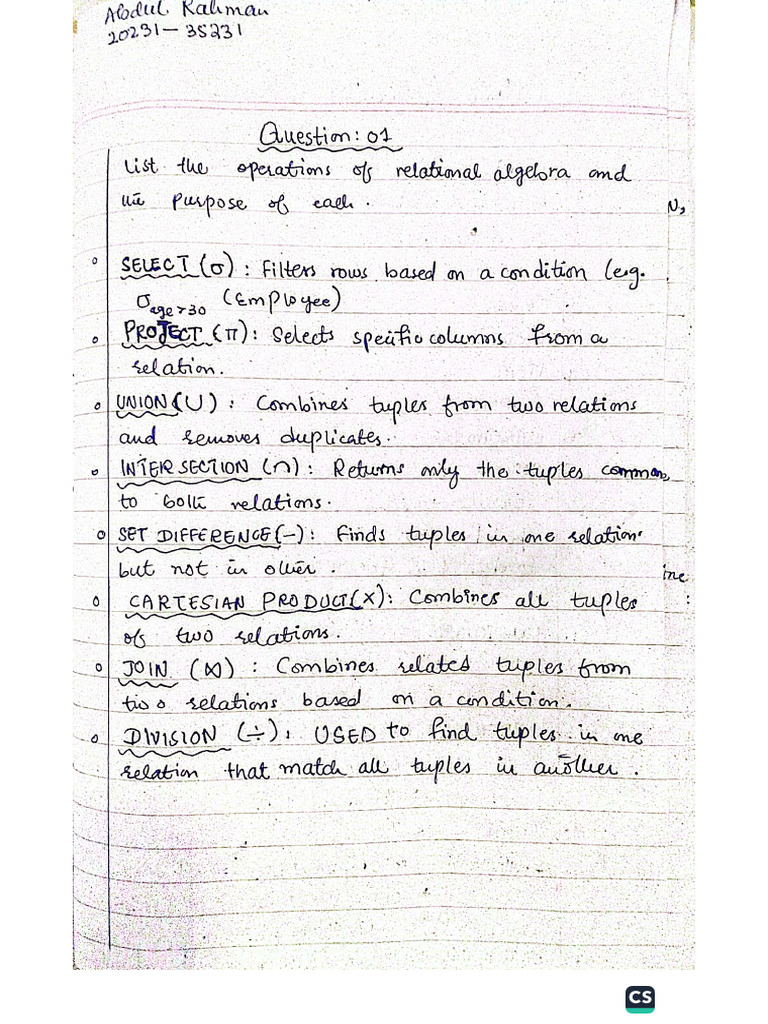 Abdul Rahman
20231-35231
Question: 01
List the operations of relational algebra and
the purpose of each.
N,
SELECT (σ) : Filters rows based on a condition (e.g.
σage>30 (Employee)
PROJECT (π): Selects specific columns from a
relation.
UNION (∪) : Combines tuples from two relations
and removes duplicates.
INTERSECTION (∩): Returns only the tuples common
to both relations.
SET DIFFERENCE (-): Finds tuples in one relation
but not in other.
ine
CARTESIAN PRODUCT (X): Combines all tuples
of two relations.
JOIN (⋈) : Combines related tuples from
two relations based on a condition.
DIVISION (÷): USED to find tuples in one
relation that match all tuples in another.
CS